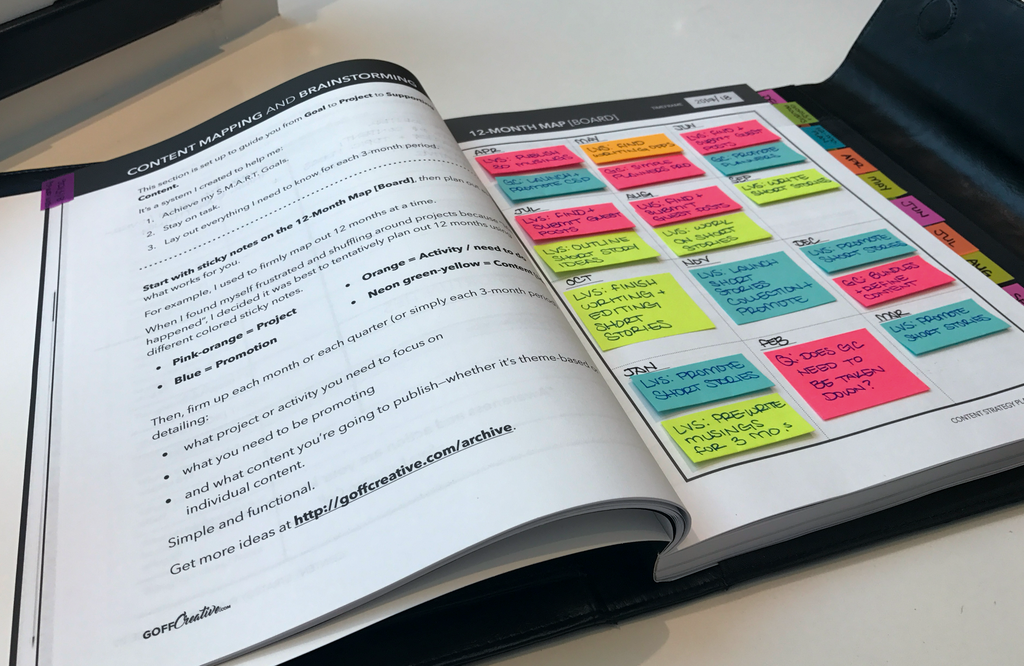 CONTENT MAPPING AND BRAINSTORMING
This section is set up to guide you from Goal to Project to
Content.
It's a system I created to help me:
1. Achieve my S.M.A.R.T. Goals.
2. Stay on task.
3. Lay out everything I need to know for each 3-month period.
Start with sticky notes on the 12-Month Map [Board], then plan
what works for you.
For example, I used to firmly map out 12 months at a time.
When I found myself frustrated and shuffling around projects because
happened", I decided it was best to tentatively plan out 12 months
different colored sticky notes.
• Pink-orange = Project
• Blue = Promotion
• Orange = Activity / need to
• Neon green-yellow =
Then, firm up each month or each quarter (or simply each 3-month
detailing:
• what project or activity you need to focus on
• what you need to be promoting
• and what content you're going to publish—whether it's theme-based
individual content.
Simple and functional.
Get more ideas at http://goffcreative.com/archive.
GOFFCreative.COM
12-MONTH MAP [BOARD]
2017/18
APR
LVS: PUBLISH
30 MUSINGS
GC: LAUNCH +
PROMOTE
MAY
LVS: FIND
WRITING GIGS
GC: SIMPLE
PLANNERS
JUN
LVS: FIND +
SUBMIT GUEST
POSTS
GC: PROMOTE
PLANNERS
JUL
LVS: FIND +
SUBMIT GUEST
POSTS
LVS: OUTLINE
SHORT STORY
IDEAS
AUG
LVS: FIND +
SUBMIT GUEST POSTS
LVS: WORK
ON SHORT
STORIES
SEP
LVS: WRITE
SHORT STORIES
OCT
LVS: FINISH
WRITING +
EDITING
SHORT
STORIES
NOV
LVS: LAUNCH
SHORT
STORIES
COLLECTION +
PROMOTE
DEC
LVS: PROMOTE
SHORT STORIES
GC: BUNDLES
+ DEFINE
CONTENT
JAN
LVS: PROMOTE
SHORT STORIES
LVS: PRE-WRITE
MUSINGS
FOR 3 MO.S
FEB
Q: DOES GC
NEED TO
BE TAKEN
DOWN?
MAR
LVS: PROMOTE
SHORT STORIES
CONTENT STRATEGY
APR
MAY
JUN
JUL
AUG